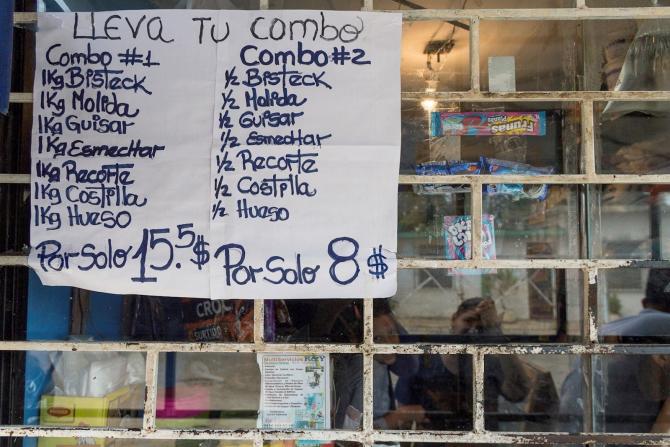 LLEVA TU COMBO
Combo #1
1Kg BISTECK
1Kg Molida
1Kg Guisar
1Kg Esmechar
1Kg Recorte
1Kg Costilla
1Kg Hueso
Por Solo 15.5$
Combo #2
1/2 BISTECK
1/2 Molida
1/2 Guisar
1/2 Esmechar
1/2 Recorte
1/2 Costilla
1/2 Hueso
Por Solo 8 $
Frunas
CROC